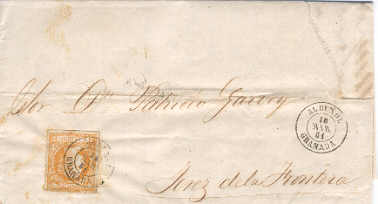 Sor Dn Patricio Garvey
ALBUÑOL
18
MAR
61
GRANADA
Jerez de la Frontera